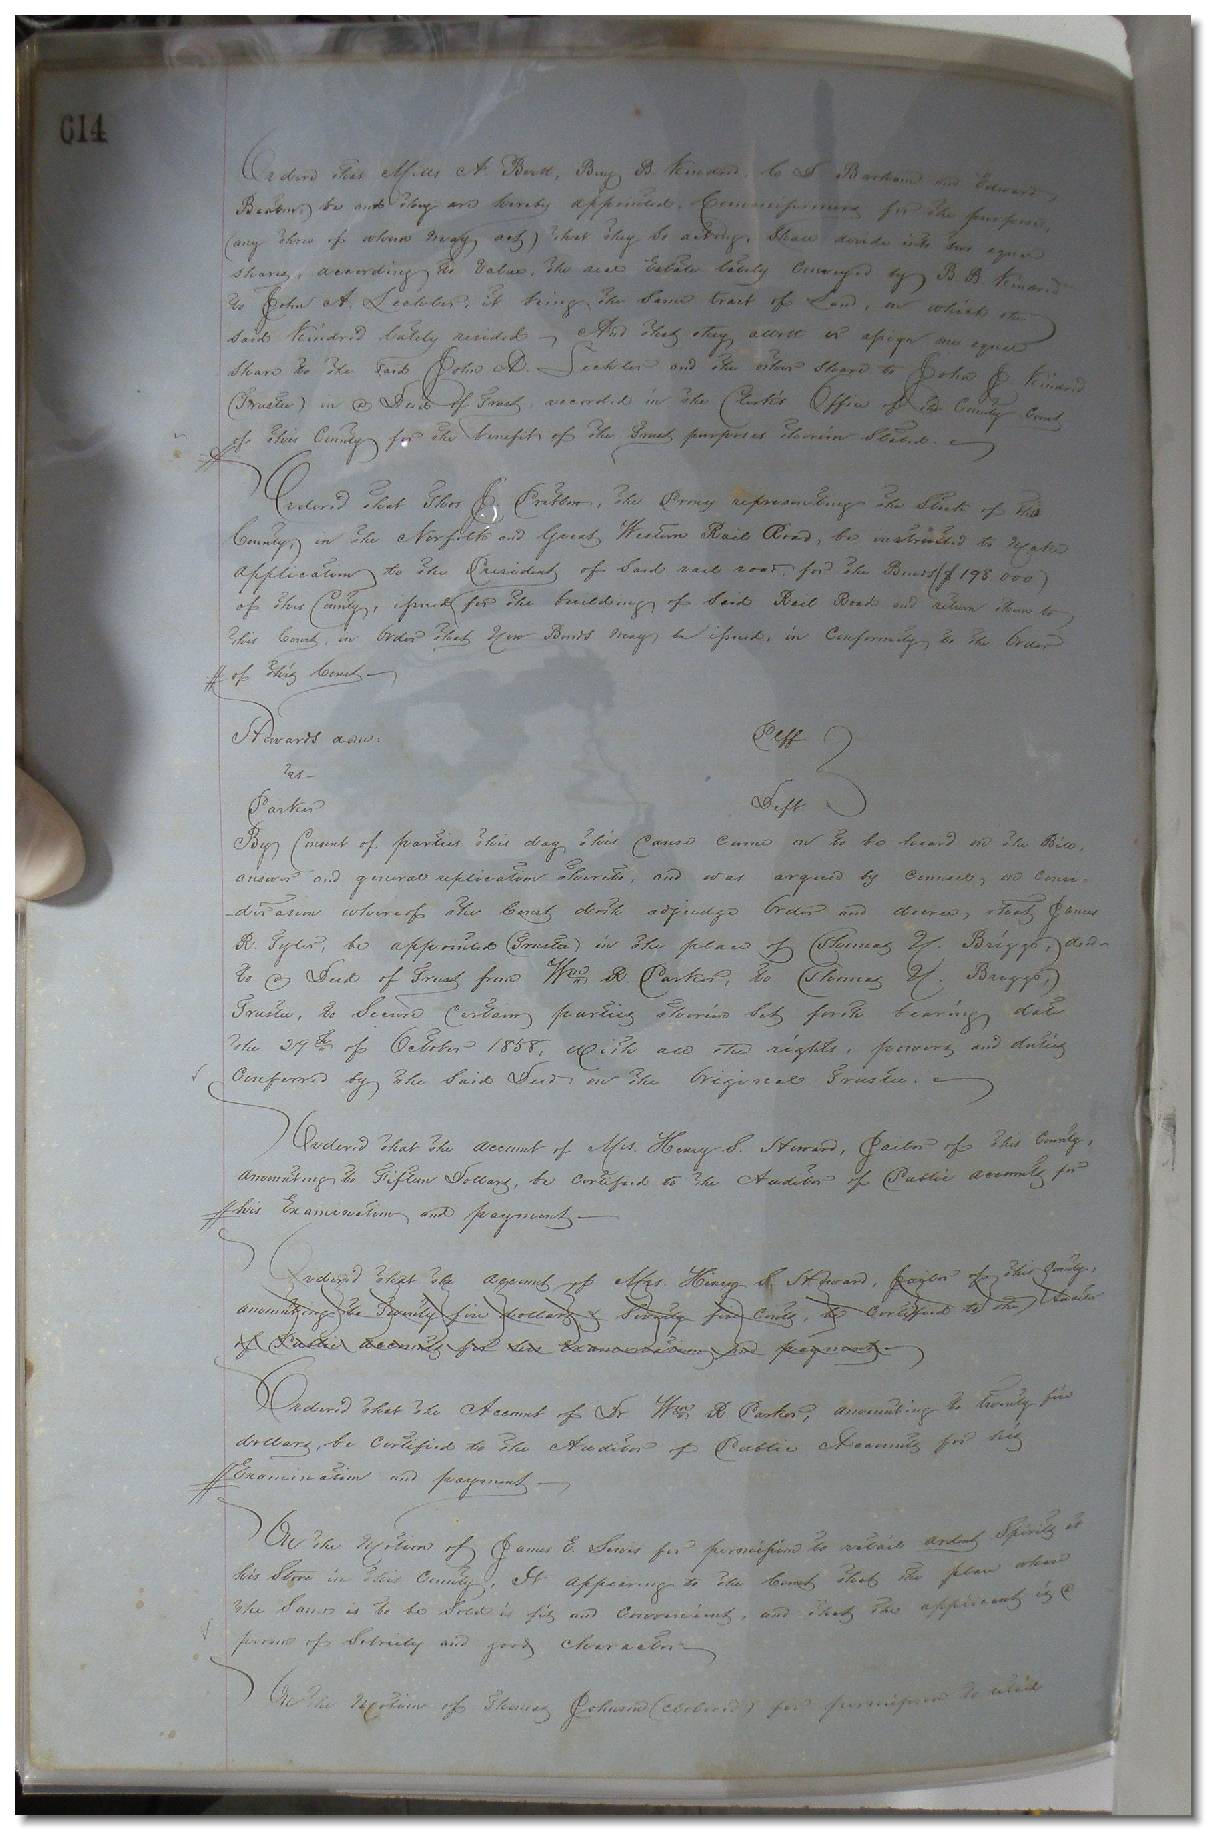 614
Ordered that Mills A. , Benj B. Kindred, C. S. Barham and Edward
Beaton be and they are hereby appointed, Commissioners for the purpose,
(any three of whom may act) that they so acting, shall divide into two equal
shares, according to value, the real Estate lately Conveyed by B. B. Kindred
to John A. Lechler, it being the same tract of Land, on which the
said Kindred lately resided, And that they allott or assign one equal
share to the said John A. Lechler and the other share to John J Kindred
(Trustee) in a Deed of Trust, recorded in the Clerks Office of the County Court
of this County for the benefit of the Trust purposes therein stated.
Ordered that Thos J. Pretlow, the Proxy representing the Stock of this
County, in the Norfolk and Great Western Rail Road, be instructed to make
application to the President of said rail road for the Bonds ($ 198 000)
of this County, issued for the building of said Rail Road and return them to
this Court, in order that New Bonds may be issued, in Conformity to the Order
of this Court
Edwards adm.
vs
Plff
Parker
Deft
By Consent of parties this day this cause came on to be heard on the Bill,
answer and general replication thereto, and was argued by counsel, on consi-
-deration whereof the Court doth adjudge order and decree, that James
R. Tyler, be appointed (Trustee) in the place of (Thomas H. Briggs,) decd
to a Deed of Trust from Wm R. Parker, to (Thomas H. Briggs,)
Trustee, to Secure Certain parties therein Set forth bearing date
the 27th of October 1858, with all the rights, powers and duties
Conferred by the said Deed, on the Original Trustee.
Ordered that the account of Mrs. Henry S. Steward, Jailor of this County,
amounting to Fifteen Dollars, be certified to the Auditor of Public accounts for
his Examination and payment
Ordered that the account of Mrs. Henry S. Steward, Jaylor of this County,
amounting to Twenty five dollars & Seventy five Cents, be certified to the Auditor
of Public accounts for his Examination and payment
Ordered that the Account of Dr. Wm R Parker, amounting to twenty five
dollars, be certified to the Auditor of Public Accounts for his
Examination and payment
On the Motion of James E. Lewis for permission to retail ardent Spirits at
his Store in this County, It appearing to the Court that the place where
the same is to be Sold is fit and Convenient, and that the applicant is a
person of Sobriety and good character
On the Motion of Thomas Johnson (colored) for permission to retail